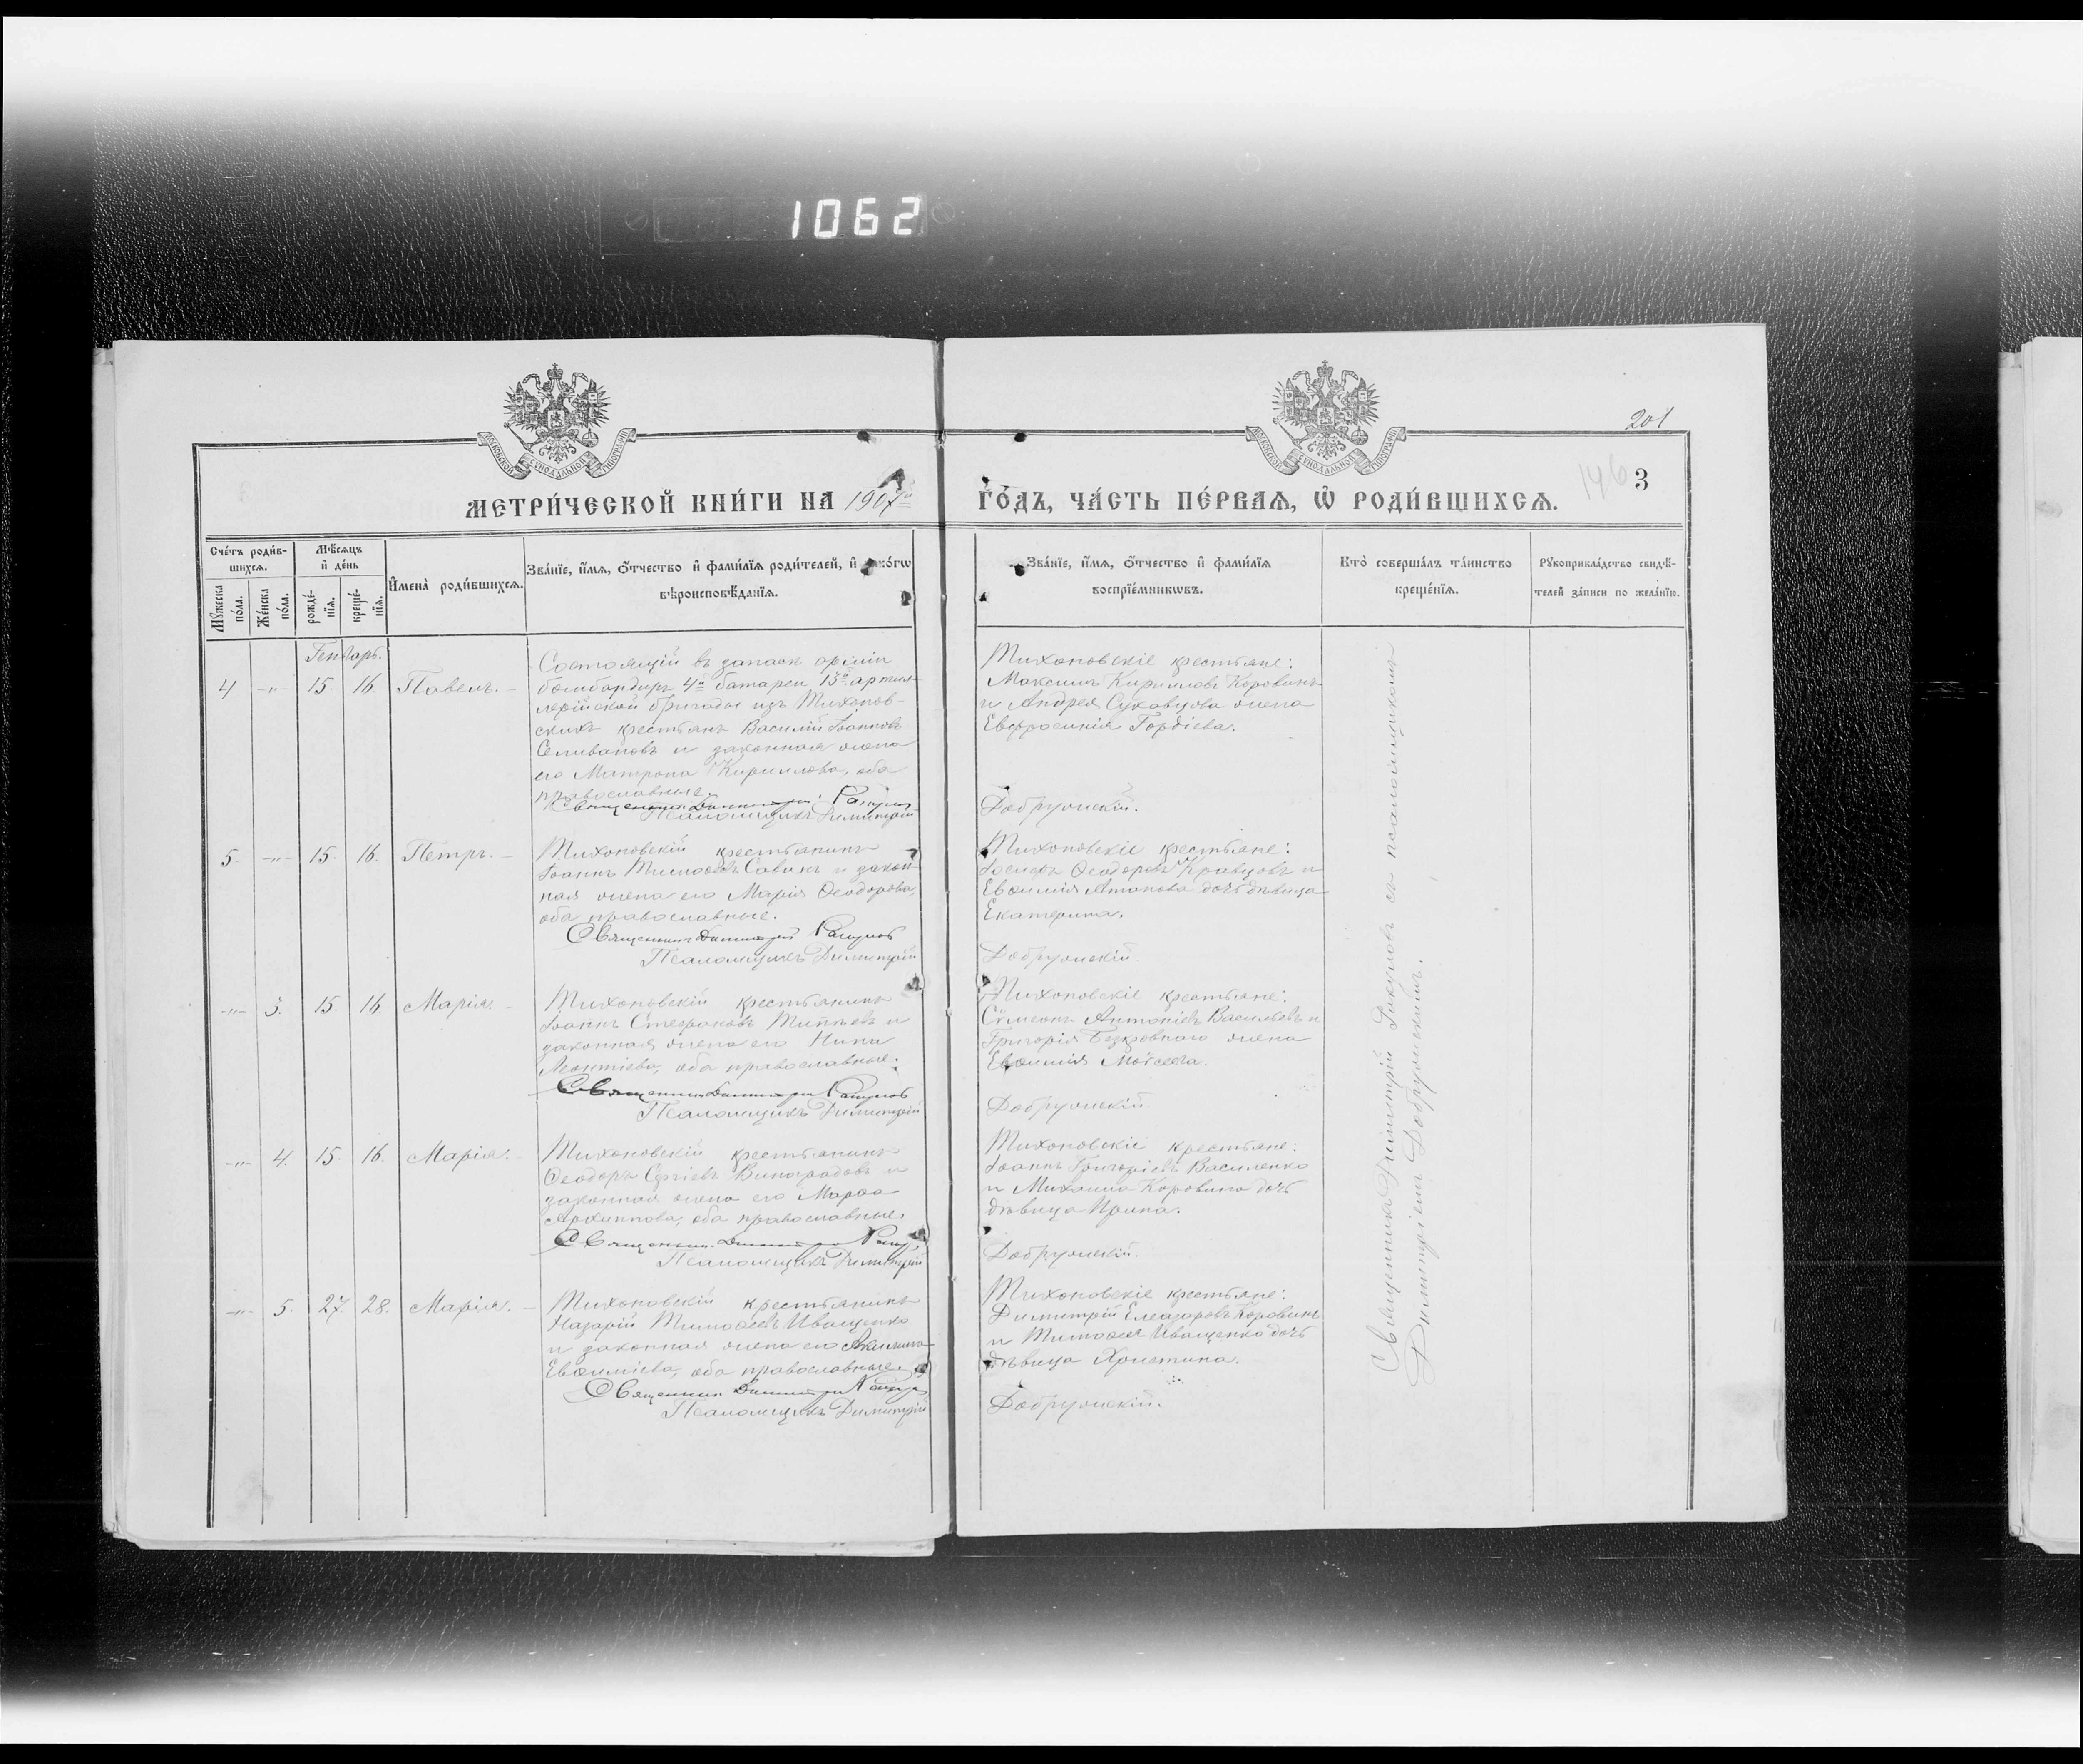 1062
201
146
3
МОСКОВСКОЙ СѴНОДАЛЬНОЙ ТИПОГРАФІИ
МОСКОВСКОЙ СѴНОДАЛЬНОЙ ТИПОГРАФІИ
МЕТРИ́ЧЕСКОЙ КНИ́ГИ НА 1907й
ГО́ДЪ, ЧА́СТЬ ПЕ́РВАѦ, Ѽ РОДИ́ВШИХСѦ.
Сче́тъ роди́в-
шихсѧ.
Мꙋ́жеска
по́ла.
Же́нска
по́ла.
Мѣ́сѧцъ
и҆ де́нь
рожде́-
нїѧ.
креще́-
нїѧ.
И҆мена̀ роди́вшихсѧ.
Зва́нїе, и҆́мѧ, ѻ҆́тчество и҆ фами́лїѧ роди́телей, и҆ како́гѡ
вѣ́роисповѣ́данїѧ.
Зва́нїе, и҆́мѧ, ѻ҆́тчество и҆ фами́лїѧ
воспрїе́мникѡвъ.
Кто̀ соверша́лъ та́инство
креще́нїѧ.
Рꙋкоприкла́дство свидѣ́-
телей за́писи по жела́нїю.
Генварь.
4 -"- 15. 16. Павелъ.
Состоящій въ запасѣ арміи
бомбардиръ 4й батареи 13й артил-
лерійской бригады изъ Тихонов-
скихъ крестьянъ Василій Іоанновъ
Селивановъ и законная жена
его Матрона Кириллова, оба
православные.
Священникъ Димитрій
Псаломщикъ Димитрій
Тихоновскіе крестьяне:
Максимъ Кирилловъ Коровинъ
и Андрея Сукавцова жена
Евфросинія Гордіева.
Добружскій.
5. -"- 15. 16. Петръ.
Тихоновскій крестьянинъ
Іоаннъ Тимоѳеевъ Савинъ и закон-
ная жена его Марія Ѳеодорова,
оба православные.
Священникъ Димитрій
Псаломщикъ Димитрій
Тихоновскіе крестьяне:
Іосифъ Ѳеодоровъ Кравцовъ и
Евѳимія Атанова дочь дѣвица
Екатерина.
Добружскій.
-"- 3. 15. 16. Марія.
Тихоновскій крестьянинъ
Іоаннъ Стефановъ и
законная жена его Нина
Леонтіева, оба православные.
Священникъ Димитрій
Псаломщикъ Димитрій
Тихоновскіе крестьяне:
Сѷмеонъ Антоніевъ Васильевъ и
Григорія Безкровнаго жена
Евѳимія Моѷсеева.
Добружскій.
-"- 4. 15. 16. Марія.
Тихоновскій крестьянинъ
Ѳеодоръ Сергіевъ Виноградовъ и
законная жена его Марѳа
Архиппова, оба православные.
Священникъ Димитрій
Псаломщикъ Димитрій
Тихоновскіе крестьяне:
Іоаннъ Григоріевъ Василенко
и Михаила Коровина дочь
дѣвица Ирина.
Добружскій.
-"- 5. 27. 28. Марія.
Тихоновскій крестьянинъ
Назарій Тимоѳеевъ Иващенко
и законная жена его Акилина
Евѳиміева, оба православные.
Священникъ Димитрій
Псаломщикъ Димитрій
Тихоновскіе крестьяне:
Димитрій Елеазаровъ Коровинъ
и Тимоѳея Иващенко дочь
дѣвица Христина.
Добружскій.
Священникъ Димитрій съ псаломщикомъ
Димитріемъ Добружскимъ.